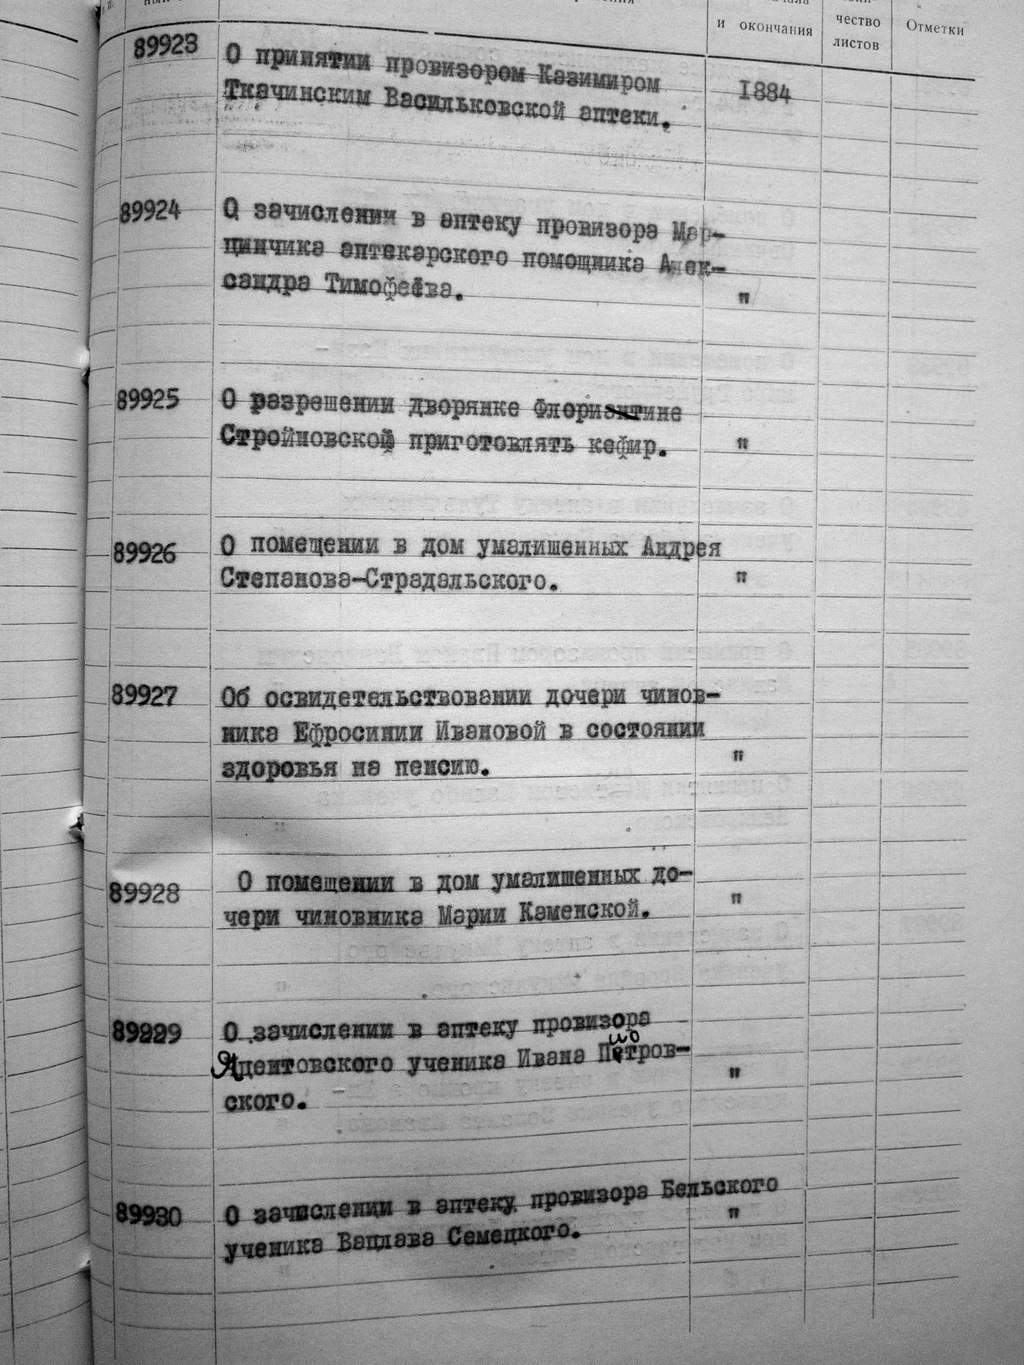 и окончания
чество
листов
Отметки
89923
О принятии провизором Казимиром
Ткачинским Васильковской аптеки.
1884
89924
О зачислении в аптеку провизора Мар-
цинчика аптекарского помощника Алек-
сандра Тимофеева.
"
89925
О разрешении дворянке Флориантине
Стройновской приготовлять кефир.
"
89926
О помещении в дом умалишенных Андрея
Степанова-Страдальского.
"
89927
Об освидетельствовании дочери чинов-
ника Ефросинии Ивановой в состоянии
здоровья на пенсию.
"
89928
О помещении в дом умалишенных до-
чери чиновника Марии Каменской.
"
89929
О зачислении в аптеку провизора
Ядентовского ученика Ивана Пиотров-
ского.
"
89930
О зачислении в аптеку провизора Бельского
ученика Вацлава Семецкого.
"